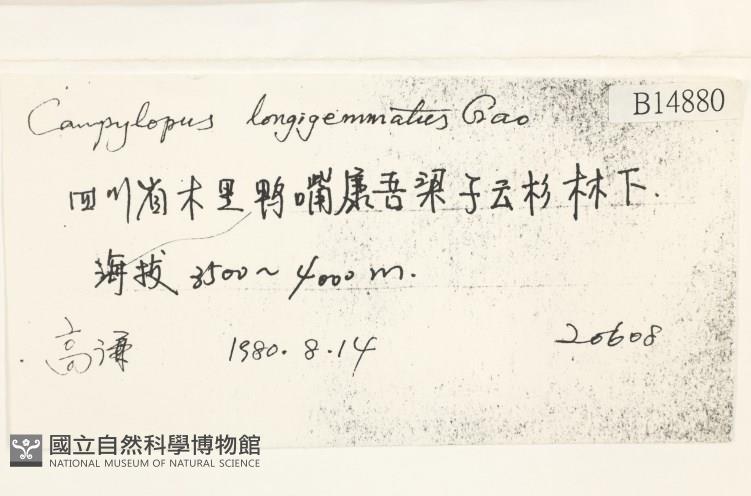 B14880
Campylopus longigemmatus Gao
四川省木里鸭嘴康吾梁子云杉林下.
海拔 3500~4000 m.
高谦 1980.8.14 20608
國立自然科學博物館
NATIONAL MUSEUM OF NATURAL SCIENCE